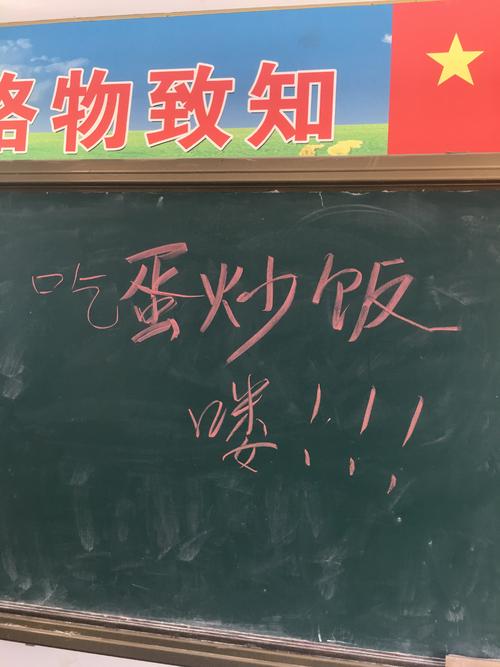 格物致知
吃蛋炒饭
喽!!!